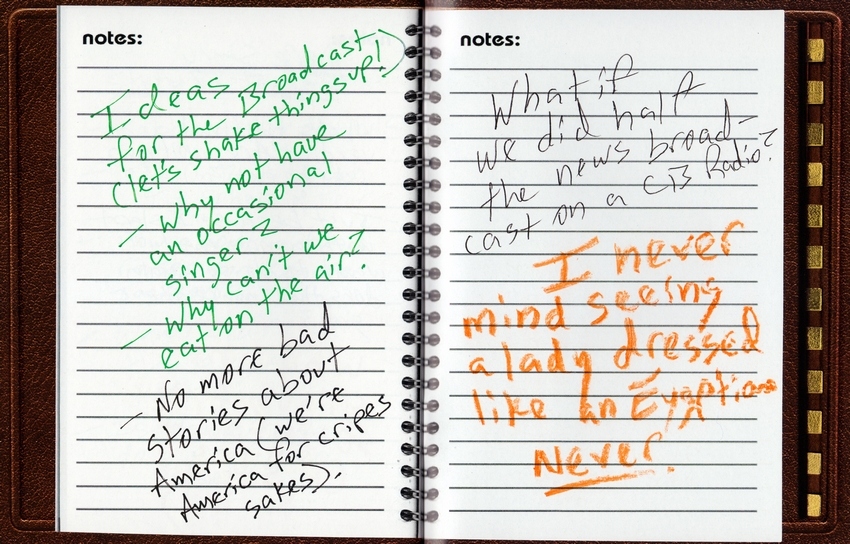 notes:
Ideas
for the Broadcast
(let's shake things up!)
- Why not have
an occasional
singer?
- Why can't we
eat on the air?
- No more bad
stories about
America (we're
America for cripes
sakes).
notes:
What if
we did half
the news broad-
cast on a CB Radio?
I never
mind seeing
a lady dressed
like an Egyptian
Never.